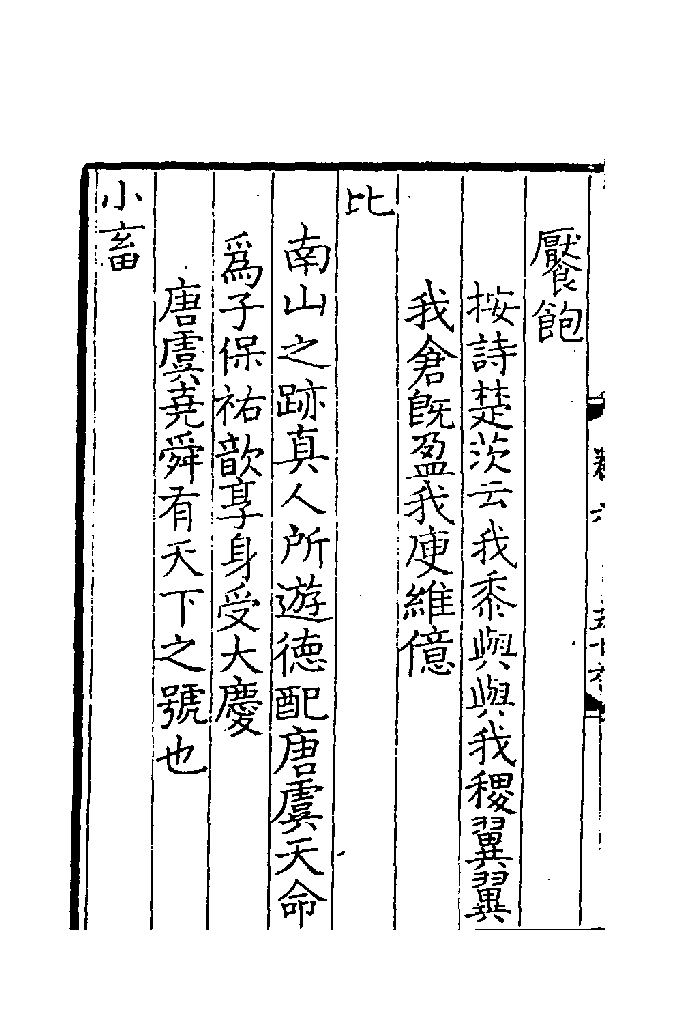 饜飽
按詩楚茨云我黍與與我稷翼翼
我倉既盈我庾維億
比
南山之跡真人所遊德配唐虞天命
為子保祐歆享身受大慶
唐虞堯舜有天下之號也
小畜